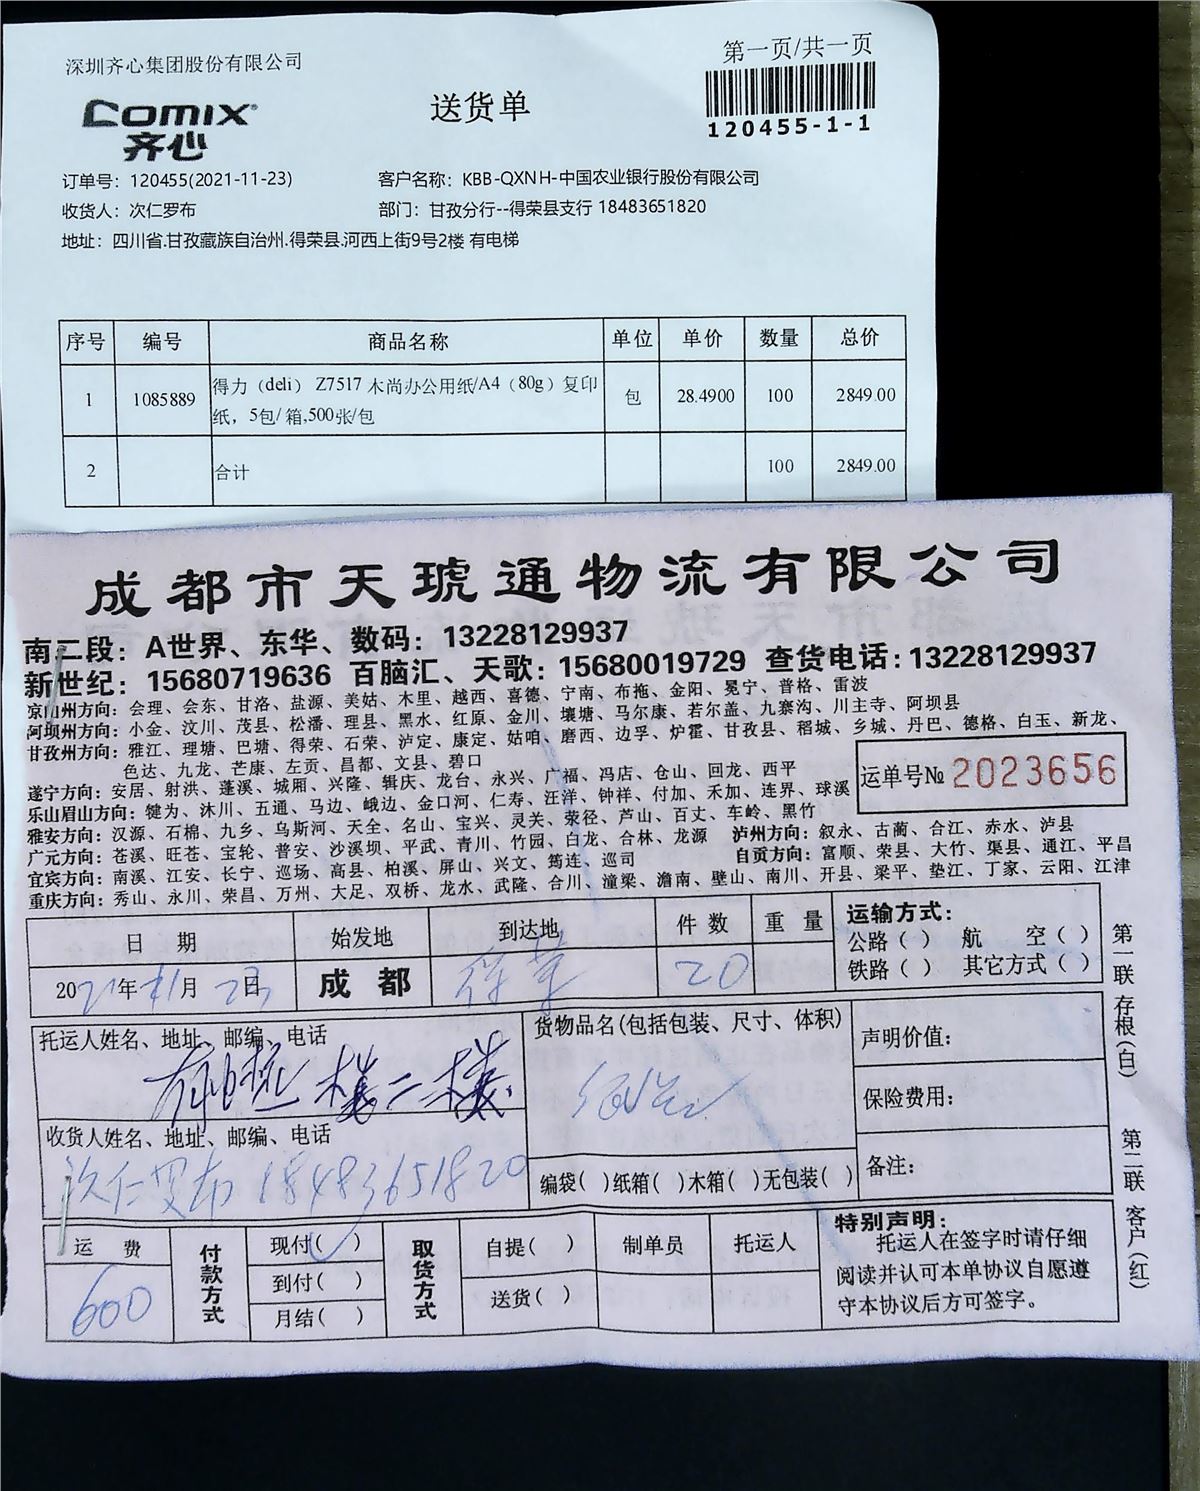 深圳齐心集团股份有限公司
第一页/共一页
COMIX
齐心
送货单
120455-1-1
订单号：120455(2021-11-23)
客户名称：KBB-QXNH-中国农业银行股份有限公司
收货人：次仁罗布
部门：甘孜分行--得荣县支行 18483651820
地址：四川省.甘孜藏族自治州.得荣县.河西上街9号2楼 有电梯
序号 编号 商品名称 单位 单价 数量 总价
1 1085889 得力（deli） Z7517 木尚办公用纸/A4（80g）复印 包 28.4900 100 2849.00
纸，5包/ 箱,500张/包
2 合计 100 2849.00
成都市天琥通物流有限公司
南二段：A世界、东华、数码：13228129937
新世纪：15680719636 百脑汇、天歌：15680019729 查货电话：13228129937
凉山州方向：会理、会东、甘洛、盐源、美姑、木里、越西、喜德、宁南、布拖、金阳、冕宁、普格、雷波
阿坝州方向：小金、汶川、茂县、松潘、理县、黑水、红原、金川、壤塘、马尔康、若尔盖、九寨沟、川主寺、阿坝县
甘孜州方向：雅江、理塘、巴塘、得荣、石荣、泸定、康定、姑咱、磨西、边孚、炉霍、甘孜县、稻城、乡城、丹巴、德格、白玉、新龙、
色达、九龙、芒康、左贡、昌都、文县、碧口
运单号№ 2023656
遂宁方向：安居、射洪、蓬溪、城厢、兴隆、辑庆、龙台、永兴、广福、冯店、仓山、回龙、西平
乐山眉山方向：犍为、沐川、五通、马边、峨边、金口河、仁寿、汪洋、钟祥、付加、禾加、连界、球溪
雅安方向：汉源、石棉、九乡、乌斯河、天全、名山、宝兴、灵关、荥径、芦山、百丈、车岭、黑竹
广元方向：苍溪、旺苍、宝轮、普安、沙溪坝、平武、青川、竹园、白龙、合林、龙源 泸州方向：叙永、古蔺、合江、赤水、泸县
宜宾方向：南溪、江安、长宁、巡场、高县、柏溪、屏山、兴文、筠连、巡司 自贡方向：富顺、荣县、大竹、渠县、通江、平昌
重庆方向：秀山、永川、荣昌、万州、大足、双桥、龙水、武隆、合川、潼梁、潼南、壁山、南川、开县、梁平、垫江、丁家、云阳、江津
日 期 始发地 到达地 件 数 重 量 运输方式：
公路（ ） 航 空（ ）
铁路（ ） 其它方式（ ）
2021年11月23日 成 都 得荣 20
托运人姓名、地址、邮编、电话
货物品名(包括包装、尺寸、体积)
声明价值：
楼二楼
保险费用：
收货人姓名、地址、邮编、电话
次仁罗布 18483651820
编袋( )纸箱( )木箱( )无包装( )
备注：
运 费 付款方式 现付( ) 取货方式 自提( ) 制单员 托运人
600 到付( ) 送货( )
月结( )
特别声明：
托运人在签字时请仔细
阅读并认可本单协议自愿遵
守本协议后方可签字。
第一联 存根(白) 第二联 客户(红)